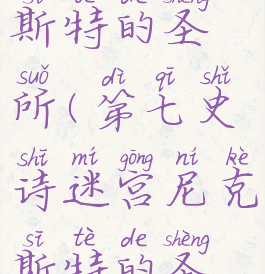 sī tè de shèng
斯特的圣
suǒ dì qī shǐ
所(第七史
shī mí gōng ní kè
诗迷宫尼克
sī tè de shèng
斯特的圣